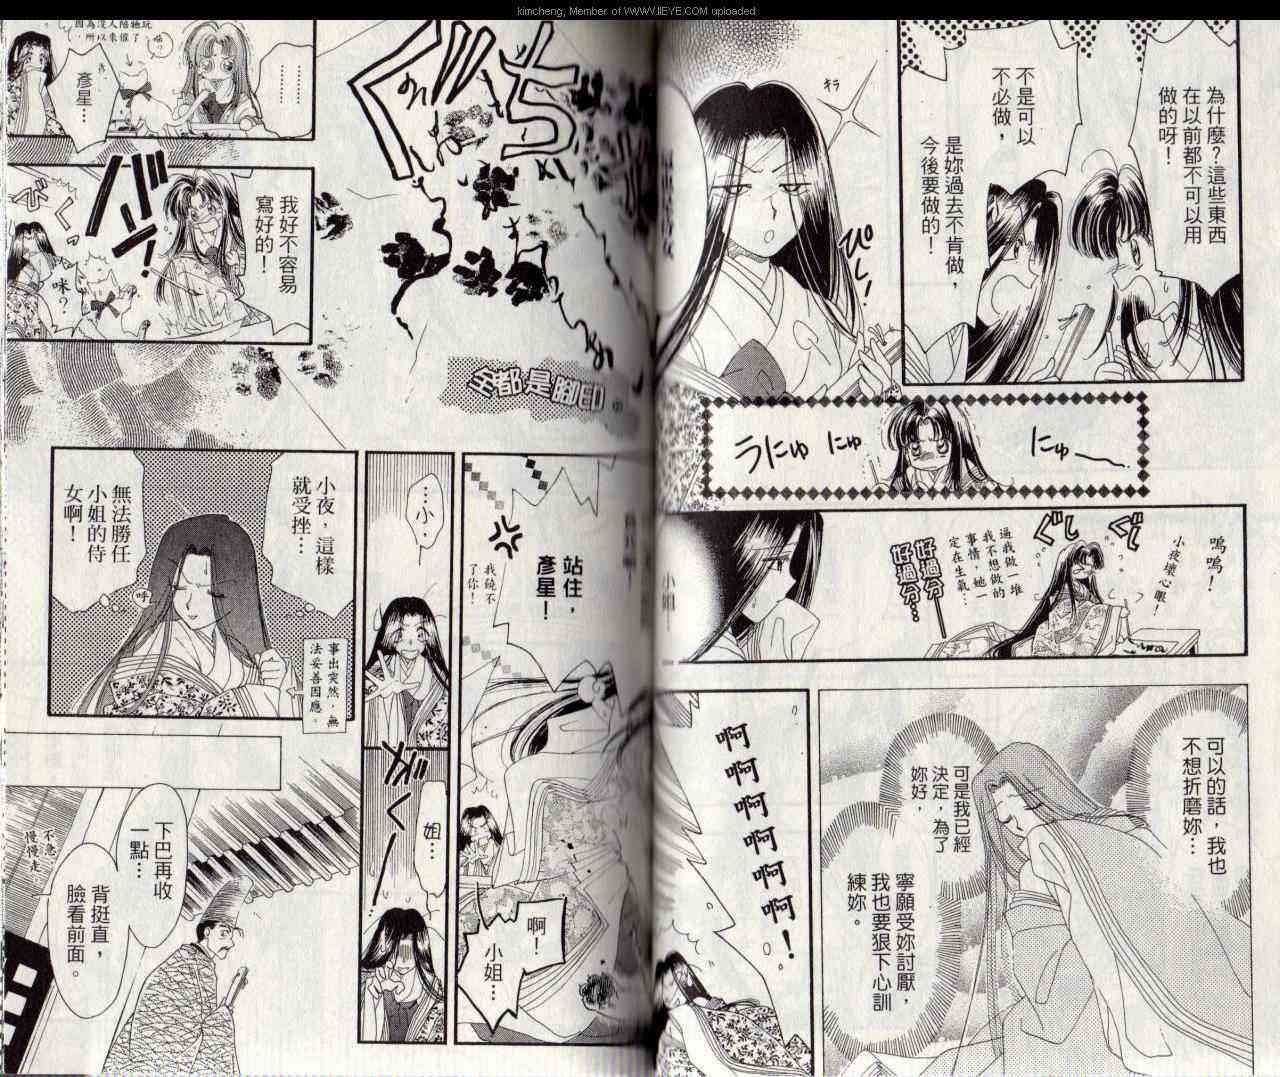 kimcheng, Member of WWW.IIEYE.COM uploaded
為什麼？這些東西
在以前都不可以用
做的呀！
不是可以
不必做，
是妳過去不肯做，
今後要做的！
キラ
ぴしっ！
にゅー
にゅ
うにゅ
嗚嗚！
小夜壞心眼！
ぐし
ぐし
逼我做一堆
我不想做的
事情，她一
定在生氣…
好過分—
好過分…
小姐—
可以的話，我也
不想折磨妳…
可是我已經
決定，為了
妳好，
寧願受妳討厭，
我也要狠下心訓
練妳。
啊
啊
啊
啊
啊
啊！
因為沒人陪牠玩
，所以來催了。
…………
彥星…
ぐち
我好不容易
寫好的！
咪？
全都是腳印。
站住，
彥星！
我饒不
了你！
啊！
小姐…
…小…
姐…
小夜，這樣
就受挫…
無法勝任
小姐的侍
女啊！
呼
事出突然，無
法妥善因應。
下巴再收
一點…
背挺直，
臉看前面。
不急，
慢慢走